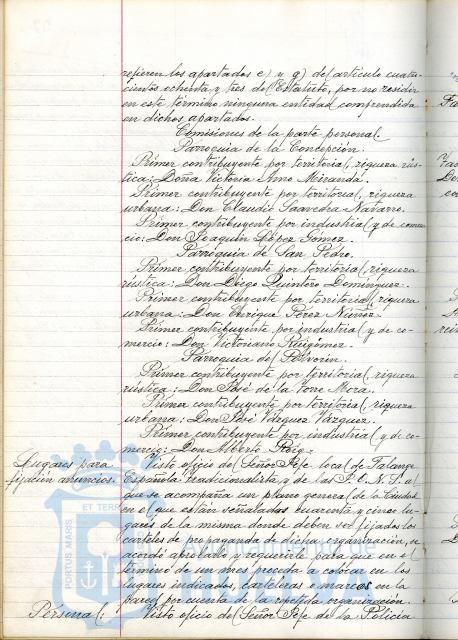 refieren los apartados e) y g) del artículo cuatro-
cientos ochenta y tres del Estatuto, por no residir
en este término ninguna entidad comprendida
en dichos apartados.
Comisiones de la parte personal
Parroquia de la Concepción.
Primer contribuyente por territorial, riqueza rús-
tica: Doña Victoria Amo Miranda.
Primer contribuyente por territorial, riqueza
urbana: Don Claudio Saavedra Navarro.
Primer contribuyente por industrial y de comer-
cio: Don Joaquín López Gómez.
Parroquia de San Pedro.
Primer contribuyente por territorial, riqueza
rústica: Don Diego Quintero Domínguez.
Primer contribuyente por territorial, riqueza
urbana: Don Enrique Pérez Núñez.
Primer contribuyente por industrial y de co-
mercio: Don Victoriano Ruigómez.
Parroquia del Polvorín.
Primer contribuyente por territorial, riqueza
rústica: Don José de la Torre Mora.
Primer contribuyente por territorial, riqueza
urbana: Don José Vázquez Vázquez.
Primer contribuyente por industrial y de co-
mercio: Don Alberto Roig.
Lugares para
fijación anuncios.
Visto oficio del Señor Jefe local de Falange
Española Tradicionalista y de las J.O.N.S. al
que se acompaña un plano general de la Ciudad
en el que están señalados cuarenta y cinco lu-
gares de la misma donde deben ser fijados los
carteles de propaganda de dicha organización, se
acordó aprobarlo y requerirle para que en el
término de un mes proceda a colocar en los
lugares indicados, carteleras o marcos en la
pared por cuenta de la repetida organización.
Personal:
Visto oficio del Señor Jefe de la Policía
PORTUS MARIS
ET TERR